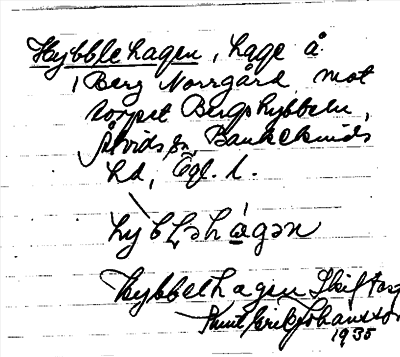 Hybblehagen, hage å
Berg Norrgård mot
torpet Bergshybbeln,
Åtvids sn, Bankekinds
hd, Ögl. l.
hybḷəhàgən
Hybbelhagen
Knut Erik Johansson
1935